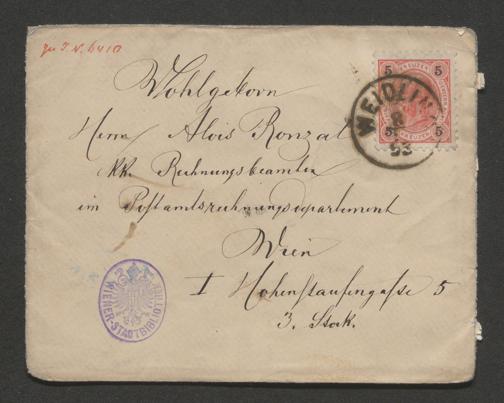 zu I. N. 6410
5 5
WEIDLIN
8
93
5 5
Wohlgeborn
Herrn Alois Ronzal
kk. Rechnungsbeamten
im Postamtsrechnungsdepartement
Wien
I Hohenstaufengasse 5
3. Stock.
WIENER-STADTBIBLIOTHEK